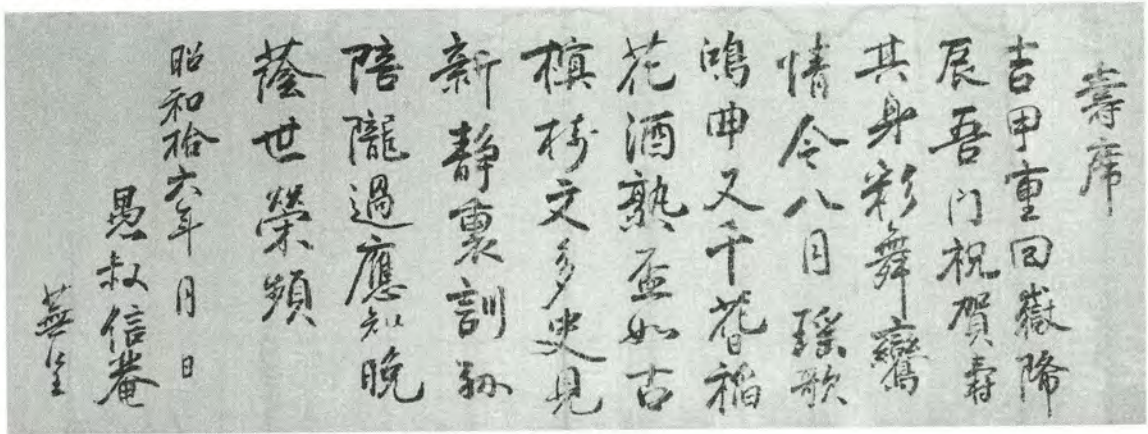 壽席
吉甲重回嶽降
辰吾门祝賀壽
其身彩舞鸞
情令八月瑤歌
鴻曲又千春稲
花酒熟盃如古
槙樹文多史見
新靜裏訓孫
陪隴過應知晚
蔭世榮頻
昭和拾六年 月 日
愚叔信菴
蕪呈